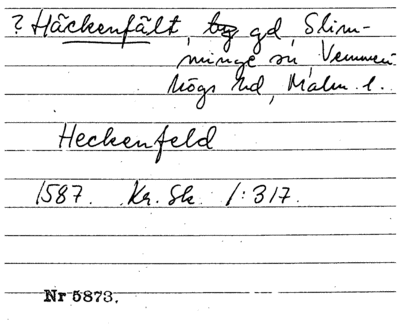 ? Häckenfält, gd, Slim-
minge sn, Vemmen-
högs hd, Malm. l.
Heckenfeld
1587. Kr. Sk 1:317.
Nr 5873.